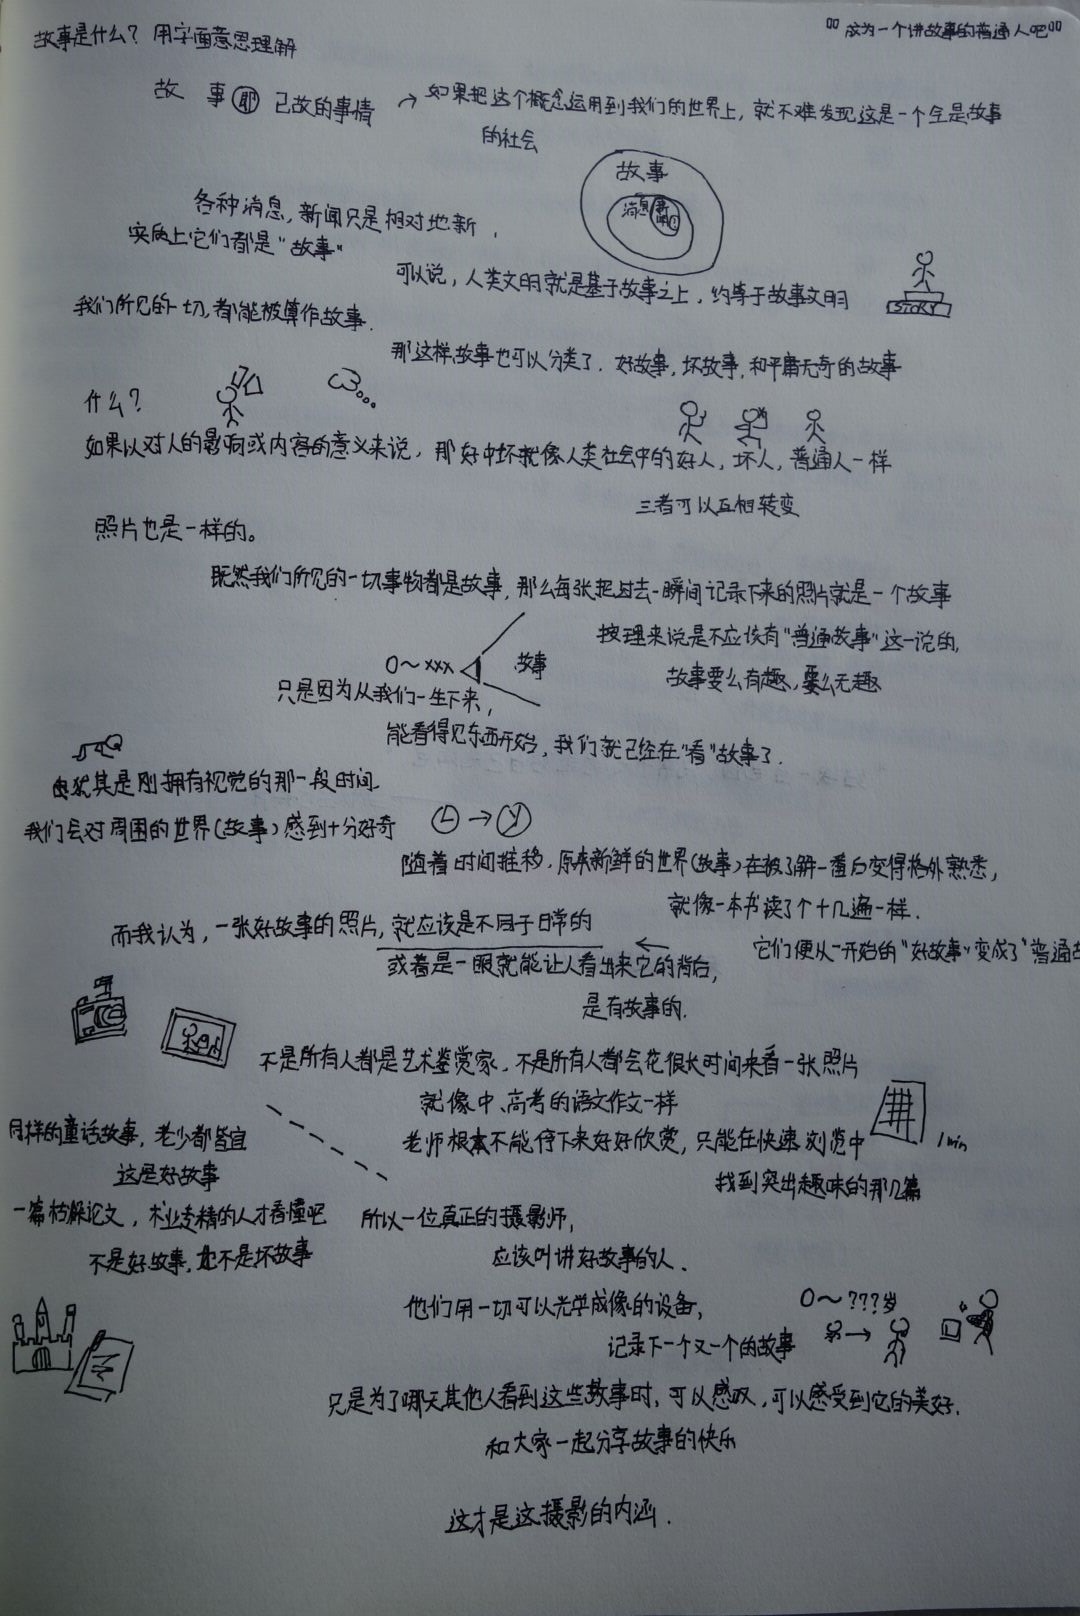 故事是什么？用字面意思理解
""成为一个讲故事的普通人吧""
故 事 即 已故的事情 → 如果把这个概念运用到我们的世界上，就不难发现这是一个全是故事
的社会
故事
消息
新闻
各种消息，新闻只是相对地新，
实质上它们都是"故事"
可以说，人类文明就是基于故事之上，约等于故事文明
STORY
我们所见的一切，都能被算作故事．
那这样，故事也可以分类了．好故事，坏故事，和平庸无奇的故事
什么？
如果以对人的影响或内容的意义来说，那好中坏就像人类社会中的好人，坏人，普通人一样
三者可以互相转变
照片也是一样的。
既然我们所见的一切事物都是故事，那么每张把过去一瞬间记录下来的照片就是一个故事
按理来说是不应该有"普通故事"这一说的，
0～xxx
故事
故事要么有趣，要么无趣
只是因为从我们一生下来，
能看得见东西开始，我们就已经在"看"故事了．
尤其是刚拥有视觉的那一段时间
我们会对周围的世界（故事）感到十分好奇
随着时间推移，原来新鲜的世界（故事）在被了解一番后变得格外熟悉，
就像一本书读了个十几遍一样．
而我认为，一张好故事的照片，就应该是不同于日常的
它们便从一开始的"好故事"变成了"普通
或着是一眼就能让人看出来它的背后，
是有故事的．
不是所有人都是艺术鉴赏家，不是所有人都会花很长时间来看一张照片
就像中、高考的语文作文一样
老师根本不能停下来好好欣赏，只能在快速浏览中
1 min
找到突出趣味的那几篇
同样的童话故事，老少都皆宜
这是好故事
一篇枯躁论文，术业专精的人才看懂吧
不是好故事，也不是坏故事
所以一位真正的摄影师，
应该叫讲好故事的人．
他们用一切可以光学成像的设备，
0～???岁
记录下一个又一个的故事
只是为了哪天其他人看到这些故事时，可以感叹，可以感受到它的美好．
和大家一起分享故事的快乐
这才是这摄影的内涵．